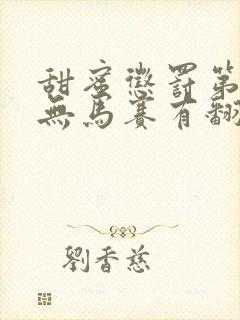 甜蜜懲罰第
無馬賽有翻
劉香慈